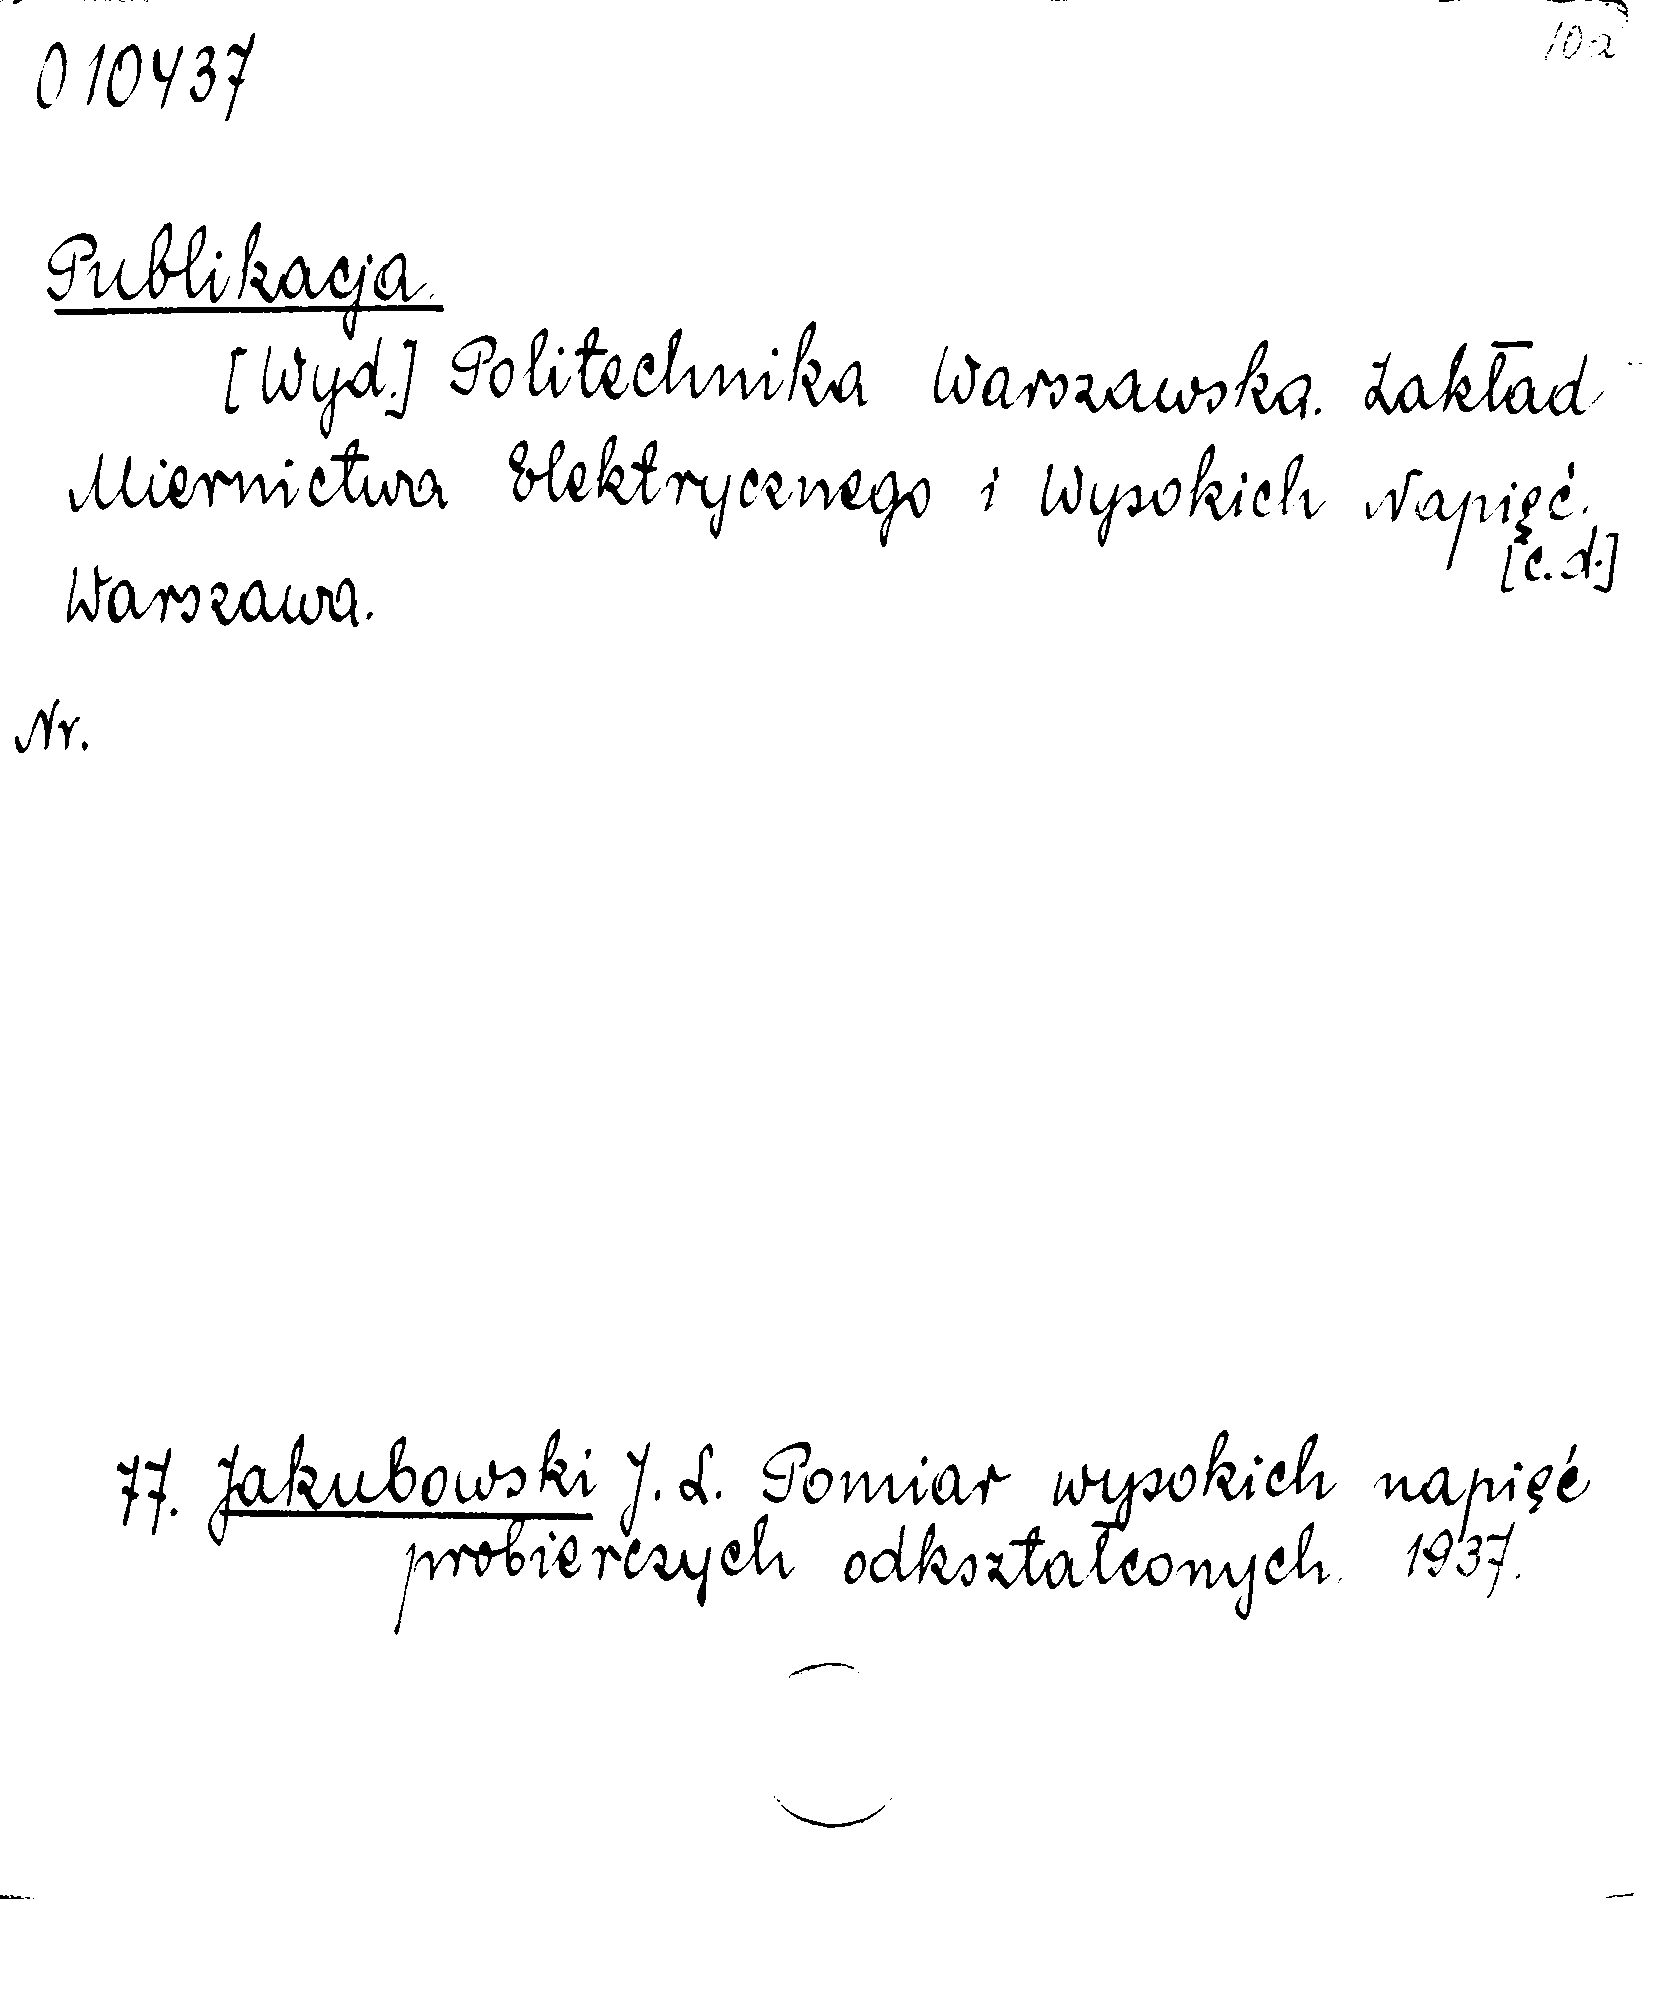 010437
10a
Publikacja.
[Wyd.] Politechnika Warszawska. Zakład
Miernictwa Elektrycznego i Wysokich Napięć.
[c.d.]
Warszawa.
Nr.
77. Jakubowski J. L. Pomiar wysokich napięć
probierczych odkształconych. 1937.